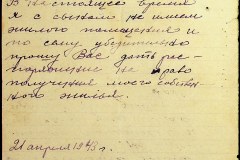 В настоящее время
я с сыном не имеем
жилого помещения и
по сему убедительно
прошу Вас дать рас-
поряжение на право
получения моего собствен-
ного жилья.
21 апреля 1943 г.